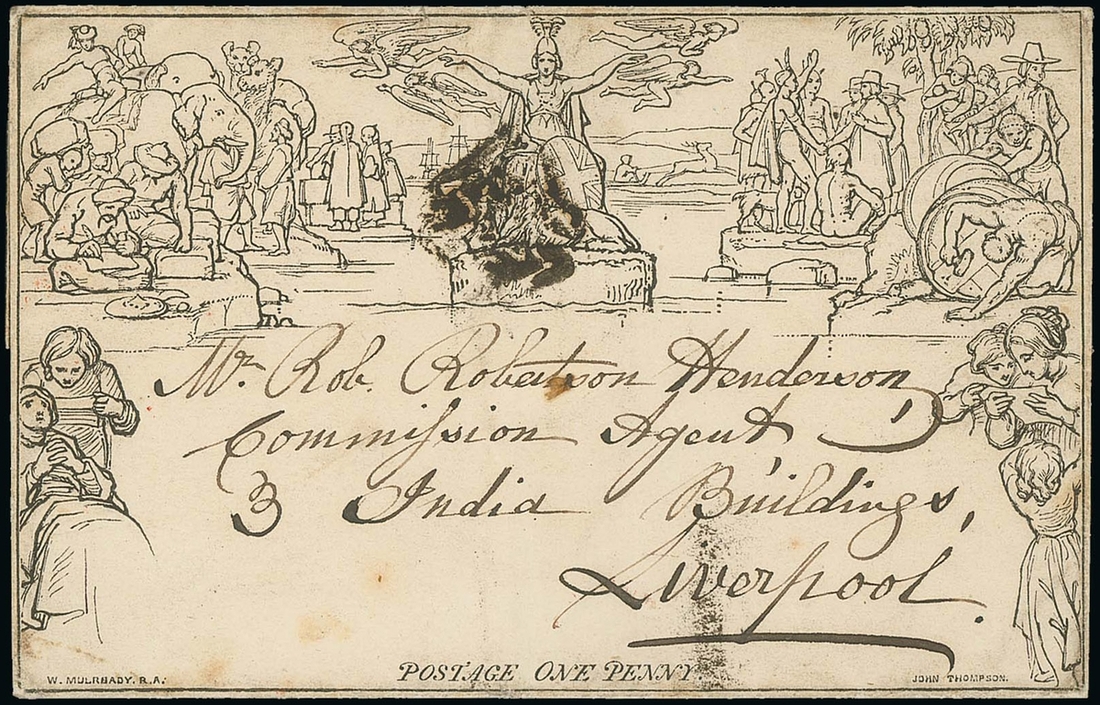 Mr. Rob. Robertson Henderson
Commission Agent
3 India Buildings,
Liverpool.
POSTAGE ONE PENNY.
W. MULREADY. R.A.
JOHN THOMPSON.